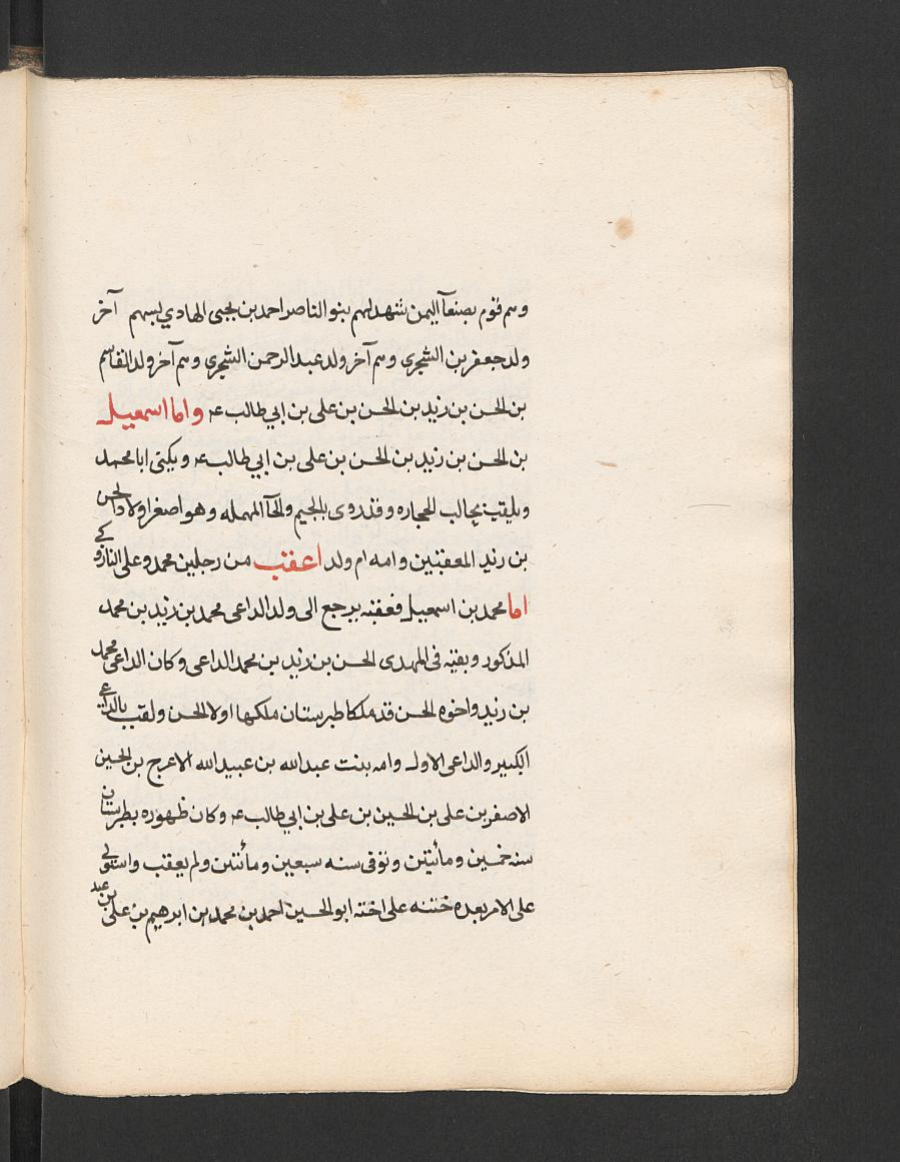 وهم قوم بصنعآ اليمن شهد لهم بنو الناصر احمد بن يحيى الهادي بنسبهم آخر
ولد جعفر بن الشجرى وهم آخر ولد عبد الرحمن الشجرى وهم آخر ولد القاسم
بن الحسن بن زيد بن الحسن بن على بن ابي طالب عه واما اسمعيل
بن الحسن بن زيد بن الحسن بن على بن ابي طالب عه ويكنى ابا محمد
ويلقب بجالب الحجاره وقد روى بالجيم والحآ المهمله وهو اصغر اولاد الحسن
بن زيد المعقبين وامه ام ولد اعقب من رجلين محمد وعلى النازوكى
اما محمد بن اسمعيل فعقبه يرجع الى ولد الداعى محمد بن زيد بن محمد
المذكور وبقيته فى المهدى الحسن بن زيد بن محمد الداعى وكان الداعى محمد
بن زيد واخوه الحسن قد ملكا طبرستان ملكها اولا الحسن ولقب بالداعي
الكبير والداعى الاول وامه بنت عبد الله بن عبيد الله الاعرج بن الحسين
الاصغر بن على بن الحسين بن على بن ابي طالب عه وكان ظهوره بطبرستان
سنه خمسين ومائتين وتوفى سنه سبعين ومائتين ولم يعقب واستولى
على الامر بعده ختنه على اخته ابو الحسين احمد بن محمد بن ابرهيم بن على بن عبد